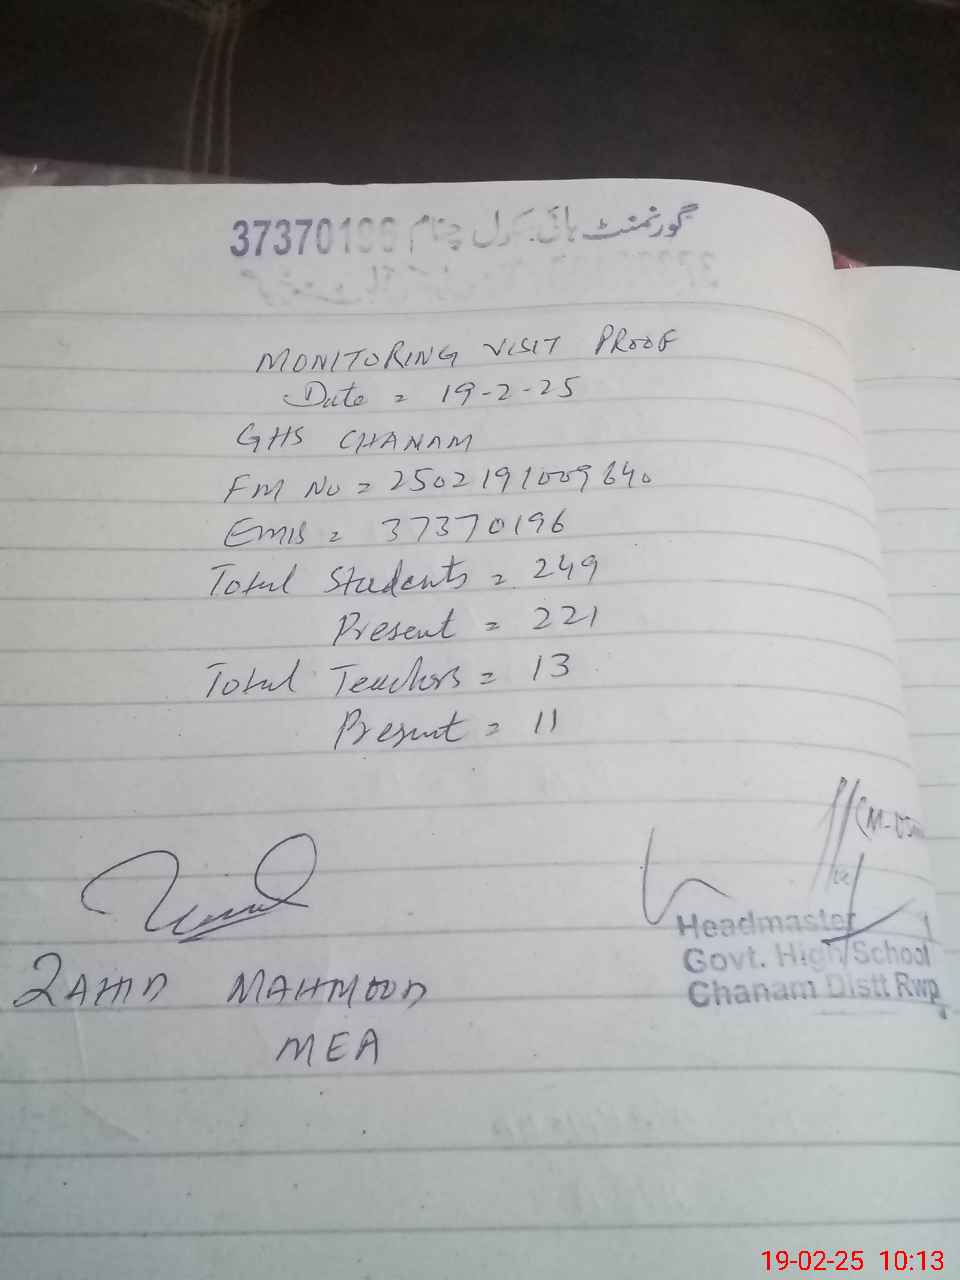 گورنمنٹ ہائی سکول چنام 37370196
MONITORING VISIT PROOF
Date = 19-2-25
GHS CHANAM
FM No = 2502191009640
EMIS = 37370196
Total Students = 249
Present = 221
Total Teachers = 13
Present = 11
ZAHID MAHMOOD
MEA
Headmaster
Govt. High School
Chanam Distt Rwp
19-02-25 10:13